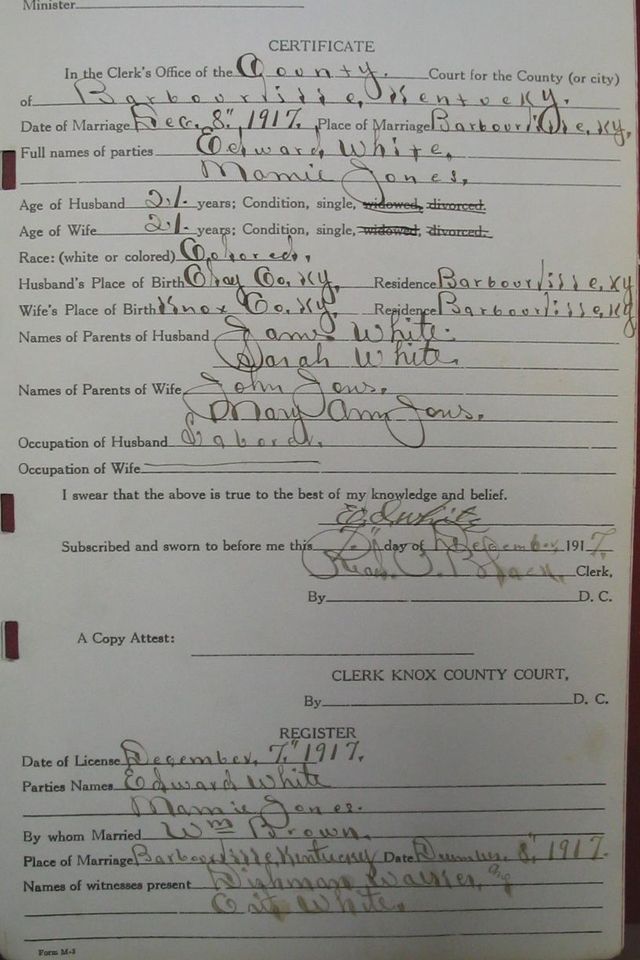 Minister
CERTIFICATE
In the Clerk's Office of the County. Court for the County (or city)
of Barbourville, Kentucky.
Date of Marriage Dec. 8." 1917. Place of Marriage Barbourville, Ky,
Full names of parties Edward White,
Mamie Jones,
Age of Husband 21. years; Condition, single, widowed, divorced.
Age of Wife 21. years; Condition, single, widowed, divorced.
Race: (white or colored) Colored.
Husband's Place of Birth Clay Co. Ky, Residence Barbourville, Ky
Wife's Place of Birth Knox Co. Ky, Residence Barbourville, Ky
Names of Parents of Husband James White.
Sarah White.
Names of Parents of Wife John Jons.
Mary Ann Jons.
Occupation of Husband Laborer.
Occupation of Wife
I swear that the above is true to the best of my knowledge and belief.
Ed White
Subscribed and sworn to before me this 7." day of December, 1917.
Clerk,
By D. C.
A Copy Attest:
CLERK KNOX COUNTY COURT,
By D. C.
REGISTER
Date of License December, 7." 1917.
Parties Names Edward White
Mamie Jones.
By whom Married Wm Brown.
Place of Marriage Barbourville, Kentucky Date December. 8," 1917.
Names of witnesses present Dishman
White.
Form M-3